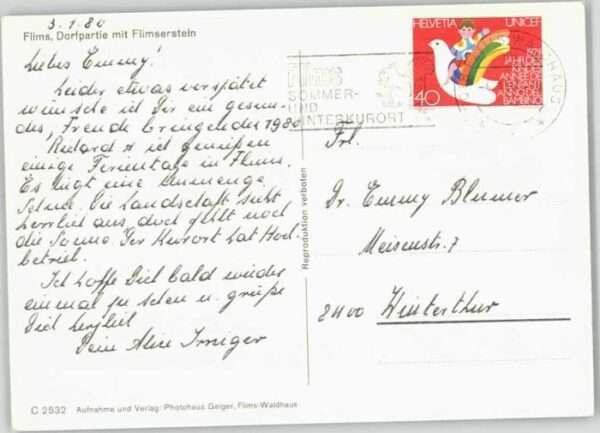 3.1.80
Flims, Dorfpartie mit Flimserstein
Liebes Emmy!
Leider etwas verspätet
wünsche ich Dir ein gesun-
des, Freude bringendes 1980
Richard u ich geniessen
einige Ferientage in Flims.
Es liegt eine Unmenge
Schnee. Die Landschaft sieht
herrlich aus, doch fehlt noch
die Sonne. Der Kurort hat Hoch-
betrieb.
Ich hoffe Dich bald wieder
einmal zu sehen u. grüsse
Dich herzlich
Dein Alice Irniger
C 2532 Aufnahme und Verlag: Photohaus Geiger, Flims-Waldhaus
Reproduktion verboten
HELVETIA UNICEF
1979
JAHR DES
KINDES
ANNÉE DE
L'ENFANT
ANNO DEL
BAMBINO
40
Flims
SOMMER-
UND
WINTERKURORT
Frl.
Dr. Emmy Blumer
Meisenstr. 7
8400 Winterthur